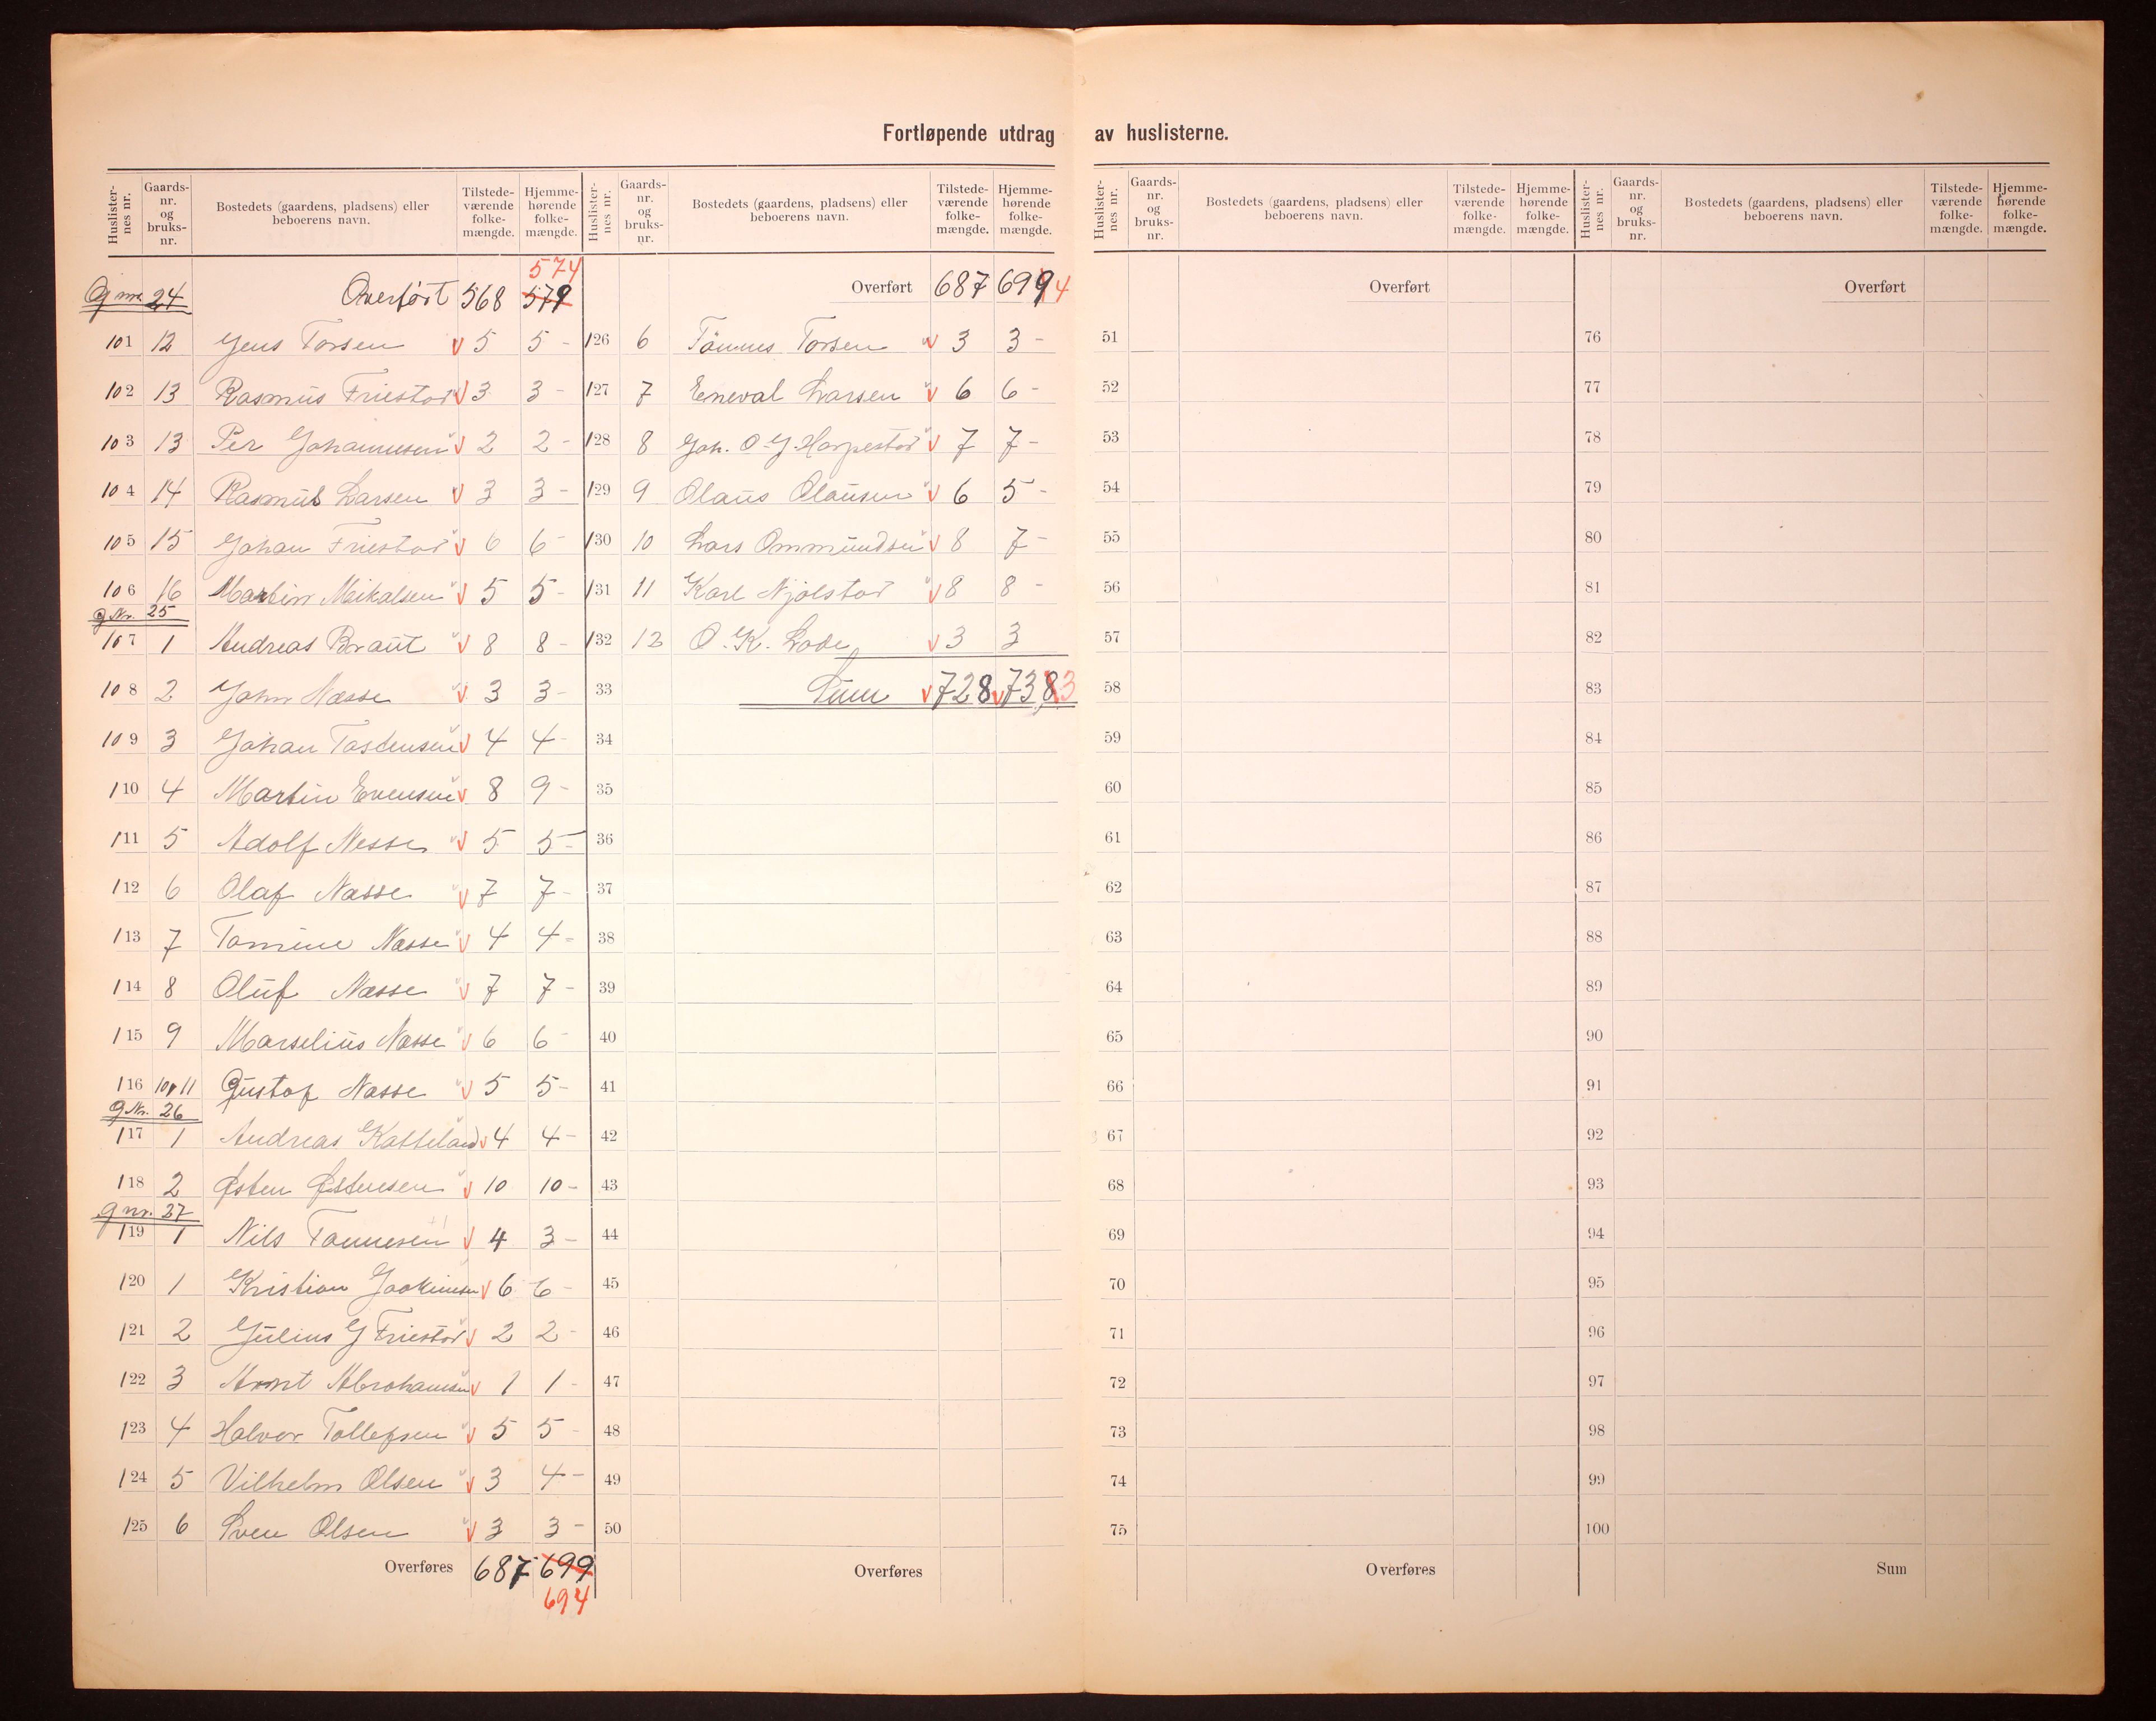 Fortløpende utdrag av huslisterne.
Huslisternes nr. Gaardsnr. og bruksnr. Bostedets (gaardens, pladsens) eller beboerens navn. Tilstedeværende folkemængde. Hjemmehørende folkemængde.
574
G nr. 24 Overført 568 579
101 12 Jens Torsen v 5 5 -
102 13 Rasmus Friestad v 3 3 -
103 13 Per Johannesen v 2 2 -
104 14 Rasmus Larsen v 3 3 -
105 15 Johan Friestad v 6 6 -
106 16 Martin Mikalsen v 5 5 -
G Nr. 25
107 1 Andreas Braut v 8 8 -
108 2 John Næsse v 3 3 -
109 3 Johan Tostensen v 4 4 -
110 4 Martin Evensen v 8 9 -
111 5 Adolf Nesse v 5 5 -
112 6 Olaf Næsse v 7 7 -
113 7 Tomine Næsse v 4 4 -
114 8 Oluf Næsse v 7 7 -
115 9 Marselius Næsse v 6 6 -
116 10 11 Gustaf Næsse v 5 5 -
G Nr. 26
117 1 Andreas Katteland v 4 4 -
118 2 Østen Østensen v 10 10 -
G nr. 27
119 1 Nils Tønnesen v 4 3 -
120 1 Kristian Joakimsen v 6 6 -
121 2 Julius J Friestad v 2 2 -
122 3 Arnt Abrahamsen v 1 1 -
123 4 Halvor Tollefsen v 5 5 -
124 5 Vilhelm Olsen v 3 4 -
125 6 Sven Olsen v 3 3 -
Overføres 687 699
694
Huslisternes nr. Gaardsnr. og bruksnr. Bostedets (gaardens, pladsens) eller beboerens navn. Tilstedeværende folkemængde. Hjemmehørende folkemængde.
Overført 687 699 4
126 6 Tönnes Torsen v 3 3 -
127 7 Eneval Larsen v 6 6 -
128 8 Joh. O. J. Harpestad v 7 7 -
129 9 Olaus Olausen v 6 5 -
130 10 Lars Ommundsen v 8 7 -
131 11 Karl Njølstad v 8 8 -
132 12 O. K. Lode v 3 3
33 Sum v 728 v 738 3
34
35
36
37
38
39
40
41
42
43
44
45
46
47
48
49
50
Overføres
Huslisternes nr. Gaardsnr. og bruksnr. Bostedets (gaardens, pladsens) eller beboerens navn. Tilstedeværende folkemængde. Hjemmehørende folkemængde.
Overført
51
52
53
54
55
56
57
58
59
60
61
62
63
64
65
66
67
68
69
70
71
72
73
74
75
Overføres
Huslisternes nr. Gaardsnr. og bruksnr. Bostedets (gaardens, pladsens) eller beboerens navn. Tilstedeværende folkemængde. Hjemmehørende folkemængde.
Overført
76
77
78
79
80
81
82
83
84
85
86
87
88
89
90
91
92
93
94
95
96
97
98
99
100
Sum